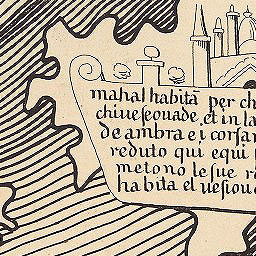 mahal habitā per ch
chiueseouade, et in la
de ambra e i corsar
reduto qui e qui
metono le sue r
habita el uesiou